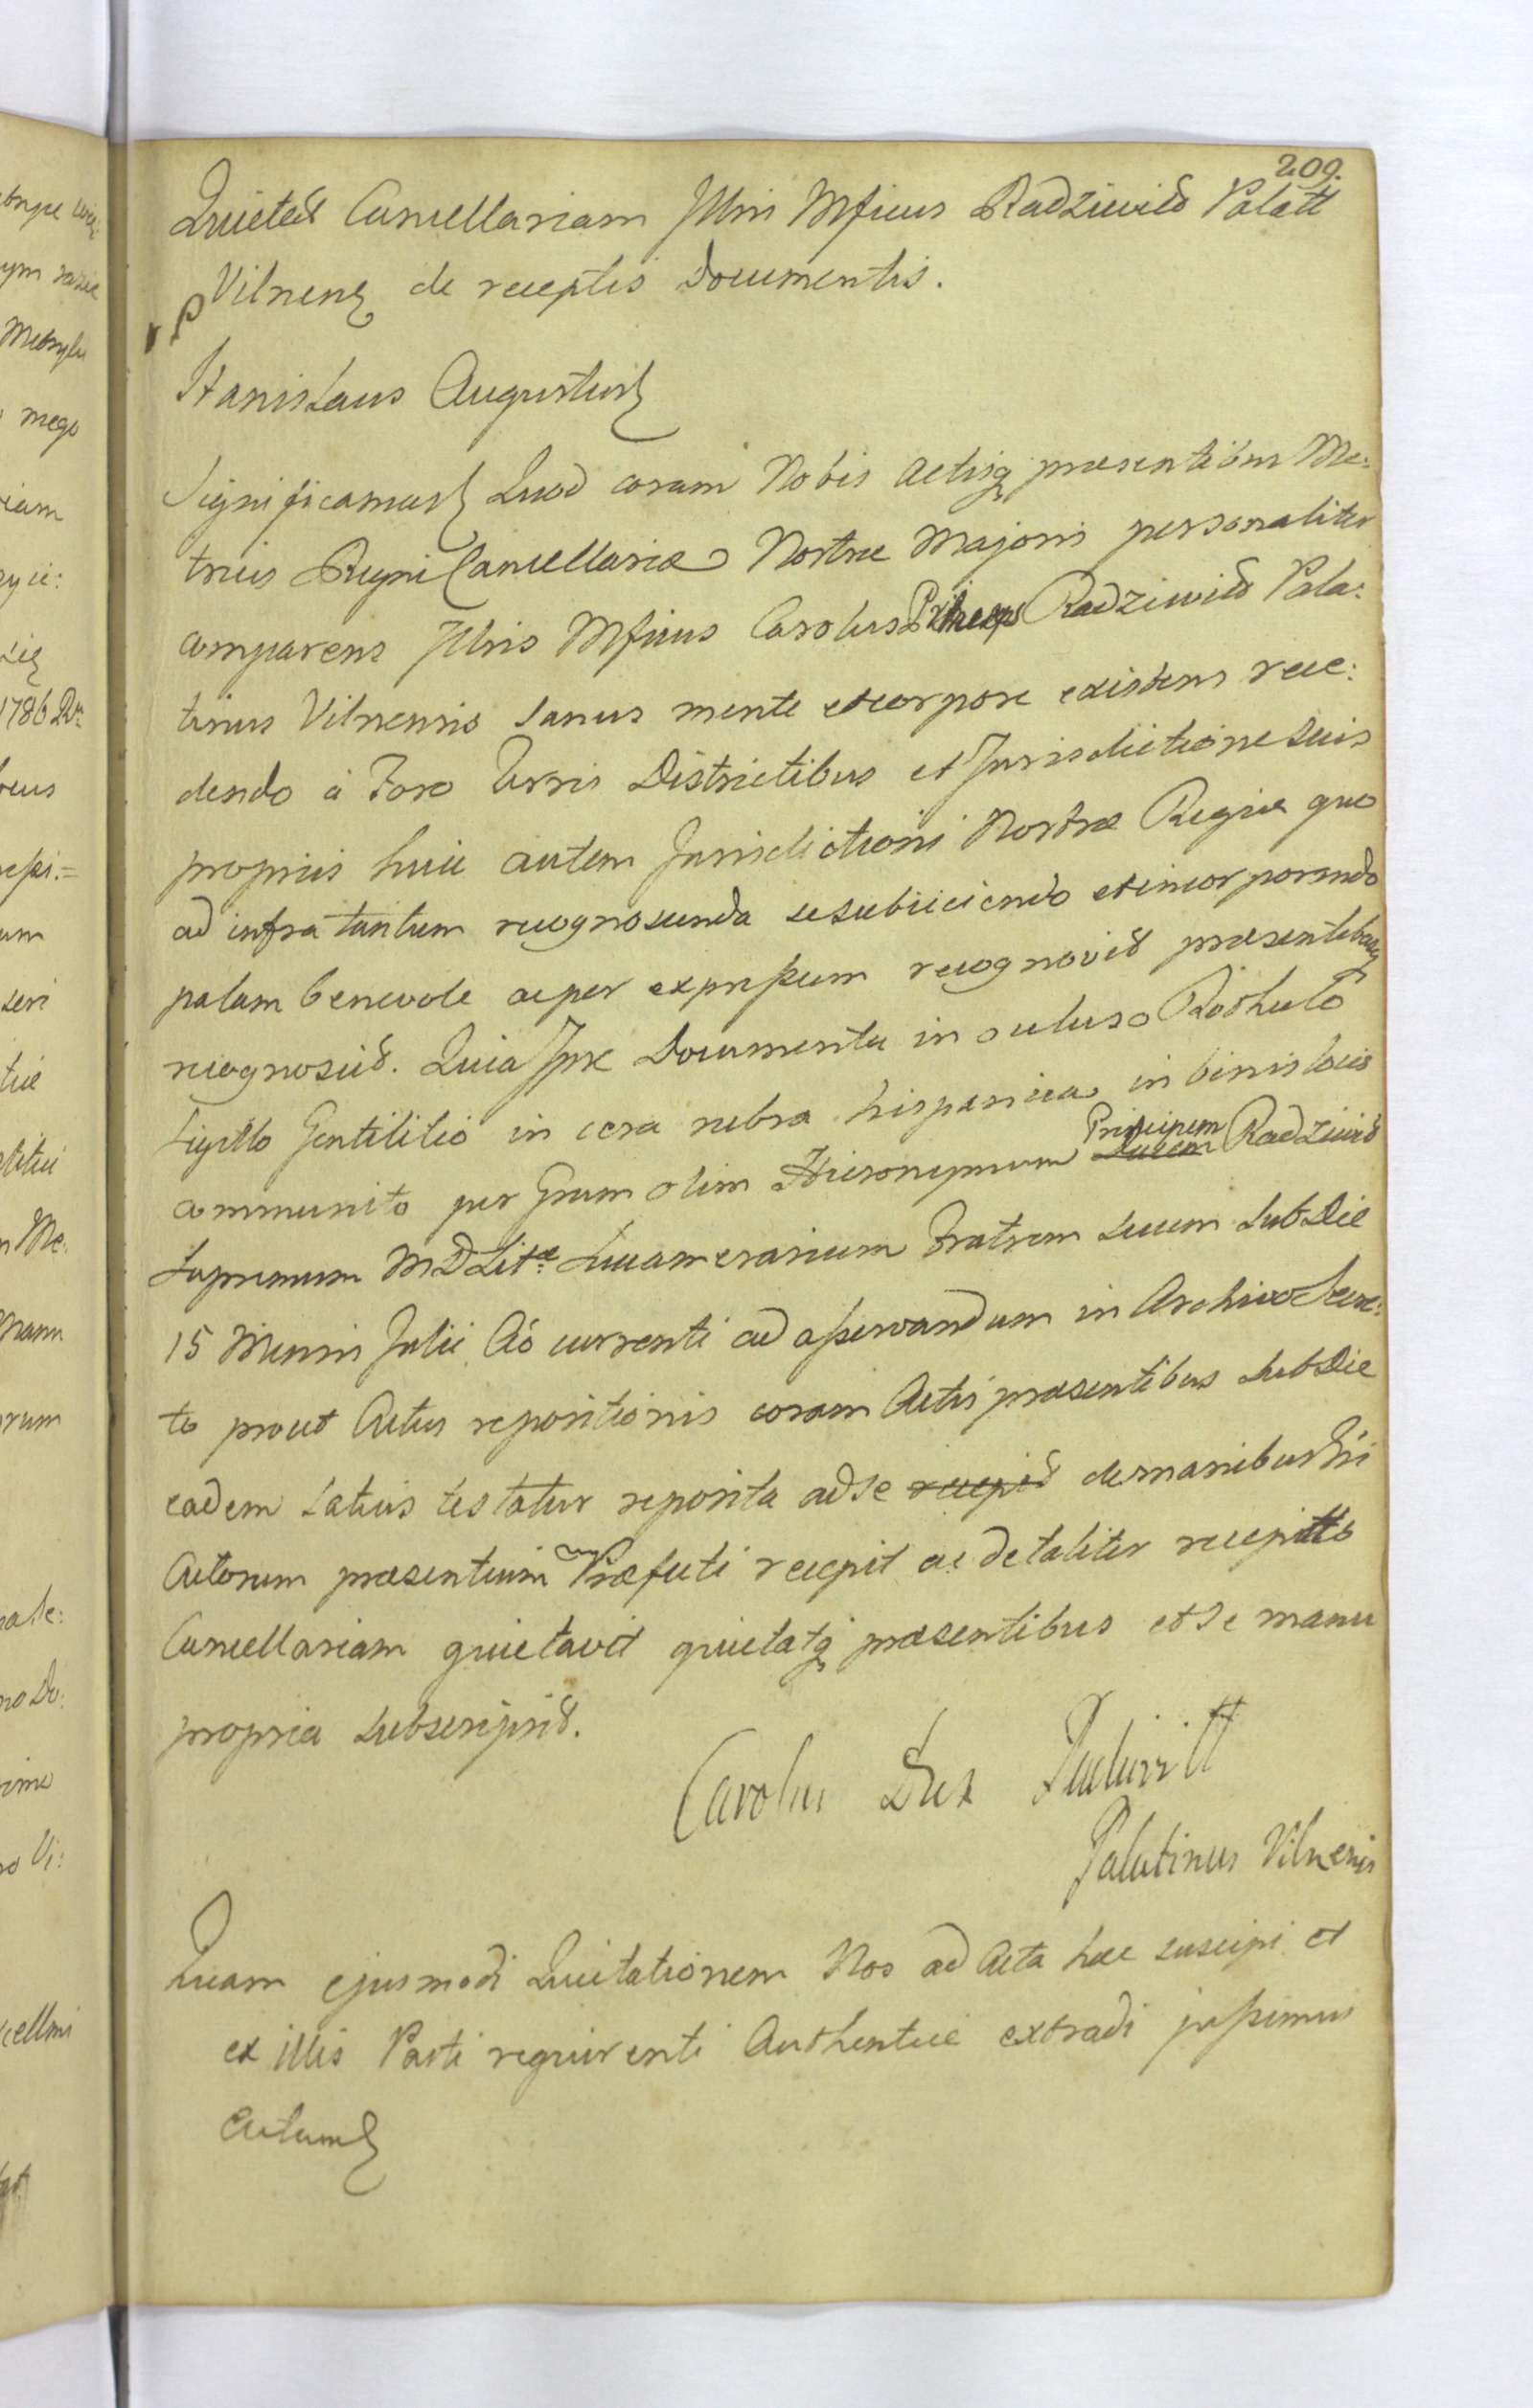 209.
Quietat Cancellariam Illris Mficus Radziwiłł Palatt
Vilnens de receptis Documentis.
Stanislaus Augustus
Significamus Quod coram Nobis Actisq praesentibus Me:
trices Regni Cancellariae Nostrae Majoris personaliter
comparens Illris Mficus Carolus Princeps Radziwiłł Pala:
tinus Vilnensis sanus mente et corpore existens rece:
dendo à Foro Terris Districtibus et Jurisdictione suis
propriis huic autem Jurisdictioni Nostrae Regiae quo
ad infra tantum recognoscenda se subiiciendo et incorporando
palam benevole ac per expressum recognovit praesentibusq
recognoscit. Quia Ipse Documenta in ocluso Rothulo
Sigillo Gentilitio in cera rubra hispanica in binis locis
communito per Grum olim Hieronymum Principem Ducem Radziwiłł
Supremum MDLitae Succamerarium Fratrem suum sub Die
15 Mensis Julii Ao currenti ad asservandum in Archivo Secre:
to prout Actus repositionis coram Actis praesentibus sub Die
eadem latius testatur reposita ad se recepit de manibus Gsi
Actorum praesentium Praefecti recepit ac de taliter receptis
Cancellariam quietavit quietatq praesentibus et se manu
propria subscripsit.
Carolus Dux Radziwill
Palatinus Vilnensis
Quam ejusmodi Quietationem Nos ad Acta haec suscipi et
ex illis Parti requirenti Authentice extradi jussimus
Actum